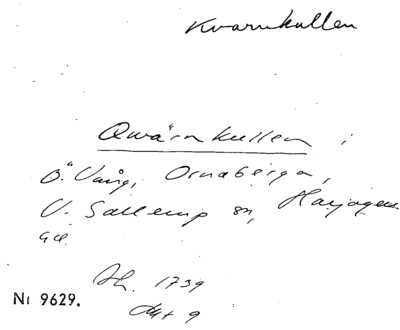 Kvarnkullen
Qwärnkullen i
Ö. Vång, Ornaberga,
V. Sallerup sn, Harjagers
hd.
Ah. 1739
Akt 9
Nr 9629.